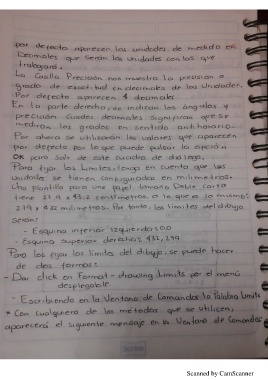 por defecto aparecen las unidades de medida en
Decimales que serán las unidades con las que
trabajará.
La Casilla Precisión nos muestra la precisión o
grado de exactitud en decimales de las Unidades.
Por defecto aparecen 4 decimales
En la parte derecha, se indican los ángulos y
precisión Suades decimales significan que se
medirán los grados en sentido antihorario.
Por ahora se utilizarán los valores que aparecen
por defecto por lo que puede pulsar la opción
OK para salir de este cuadro de diálogo,
Para fijar los Límites, tenga en cuenta que las
unidades se tienen configuradas en milímetros.
Una plantilla para una papel tamaño Doble carta
tiene 27.9 x 43.2 centímetros o lo que es lo mismo:
279 x 432 milímetros. Por tanto, los límites del dibujo
serán:
- Esquina inferior izquierda: 0,0
- Esquina superior derecha, 432, 279
Para los fijar los límites del dibujo, se puede hacer
de dos formas:
- Dar click en Format - drawing Limits por el menú
desplegable
- Escribiendo en la Ventana de Comandos la Palabra Limits
* Con cualquiera de los métodos que se utilicen,
aparecerá el siguiente mensaje en la Ventana de Comandos
Scanned by CamScanner